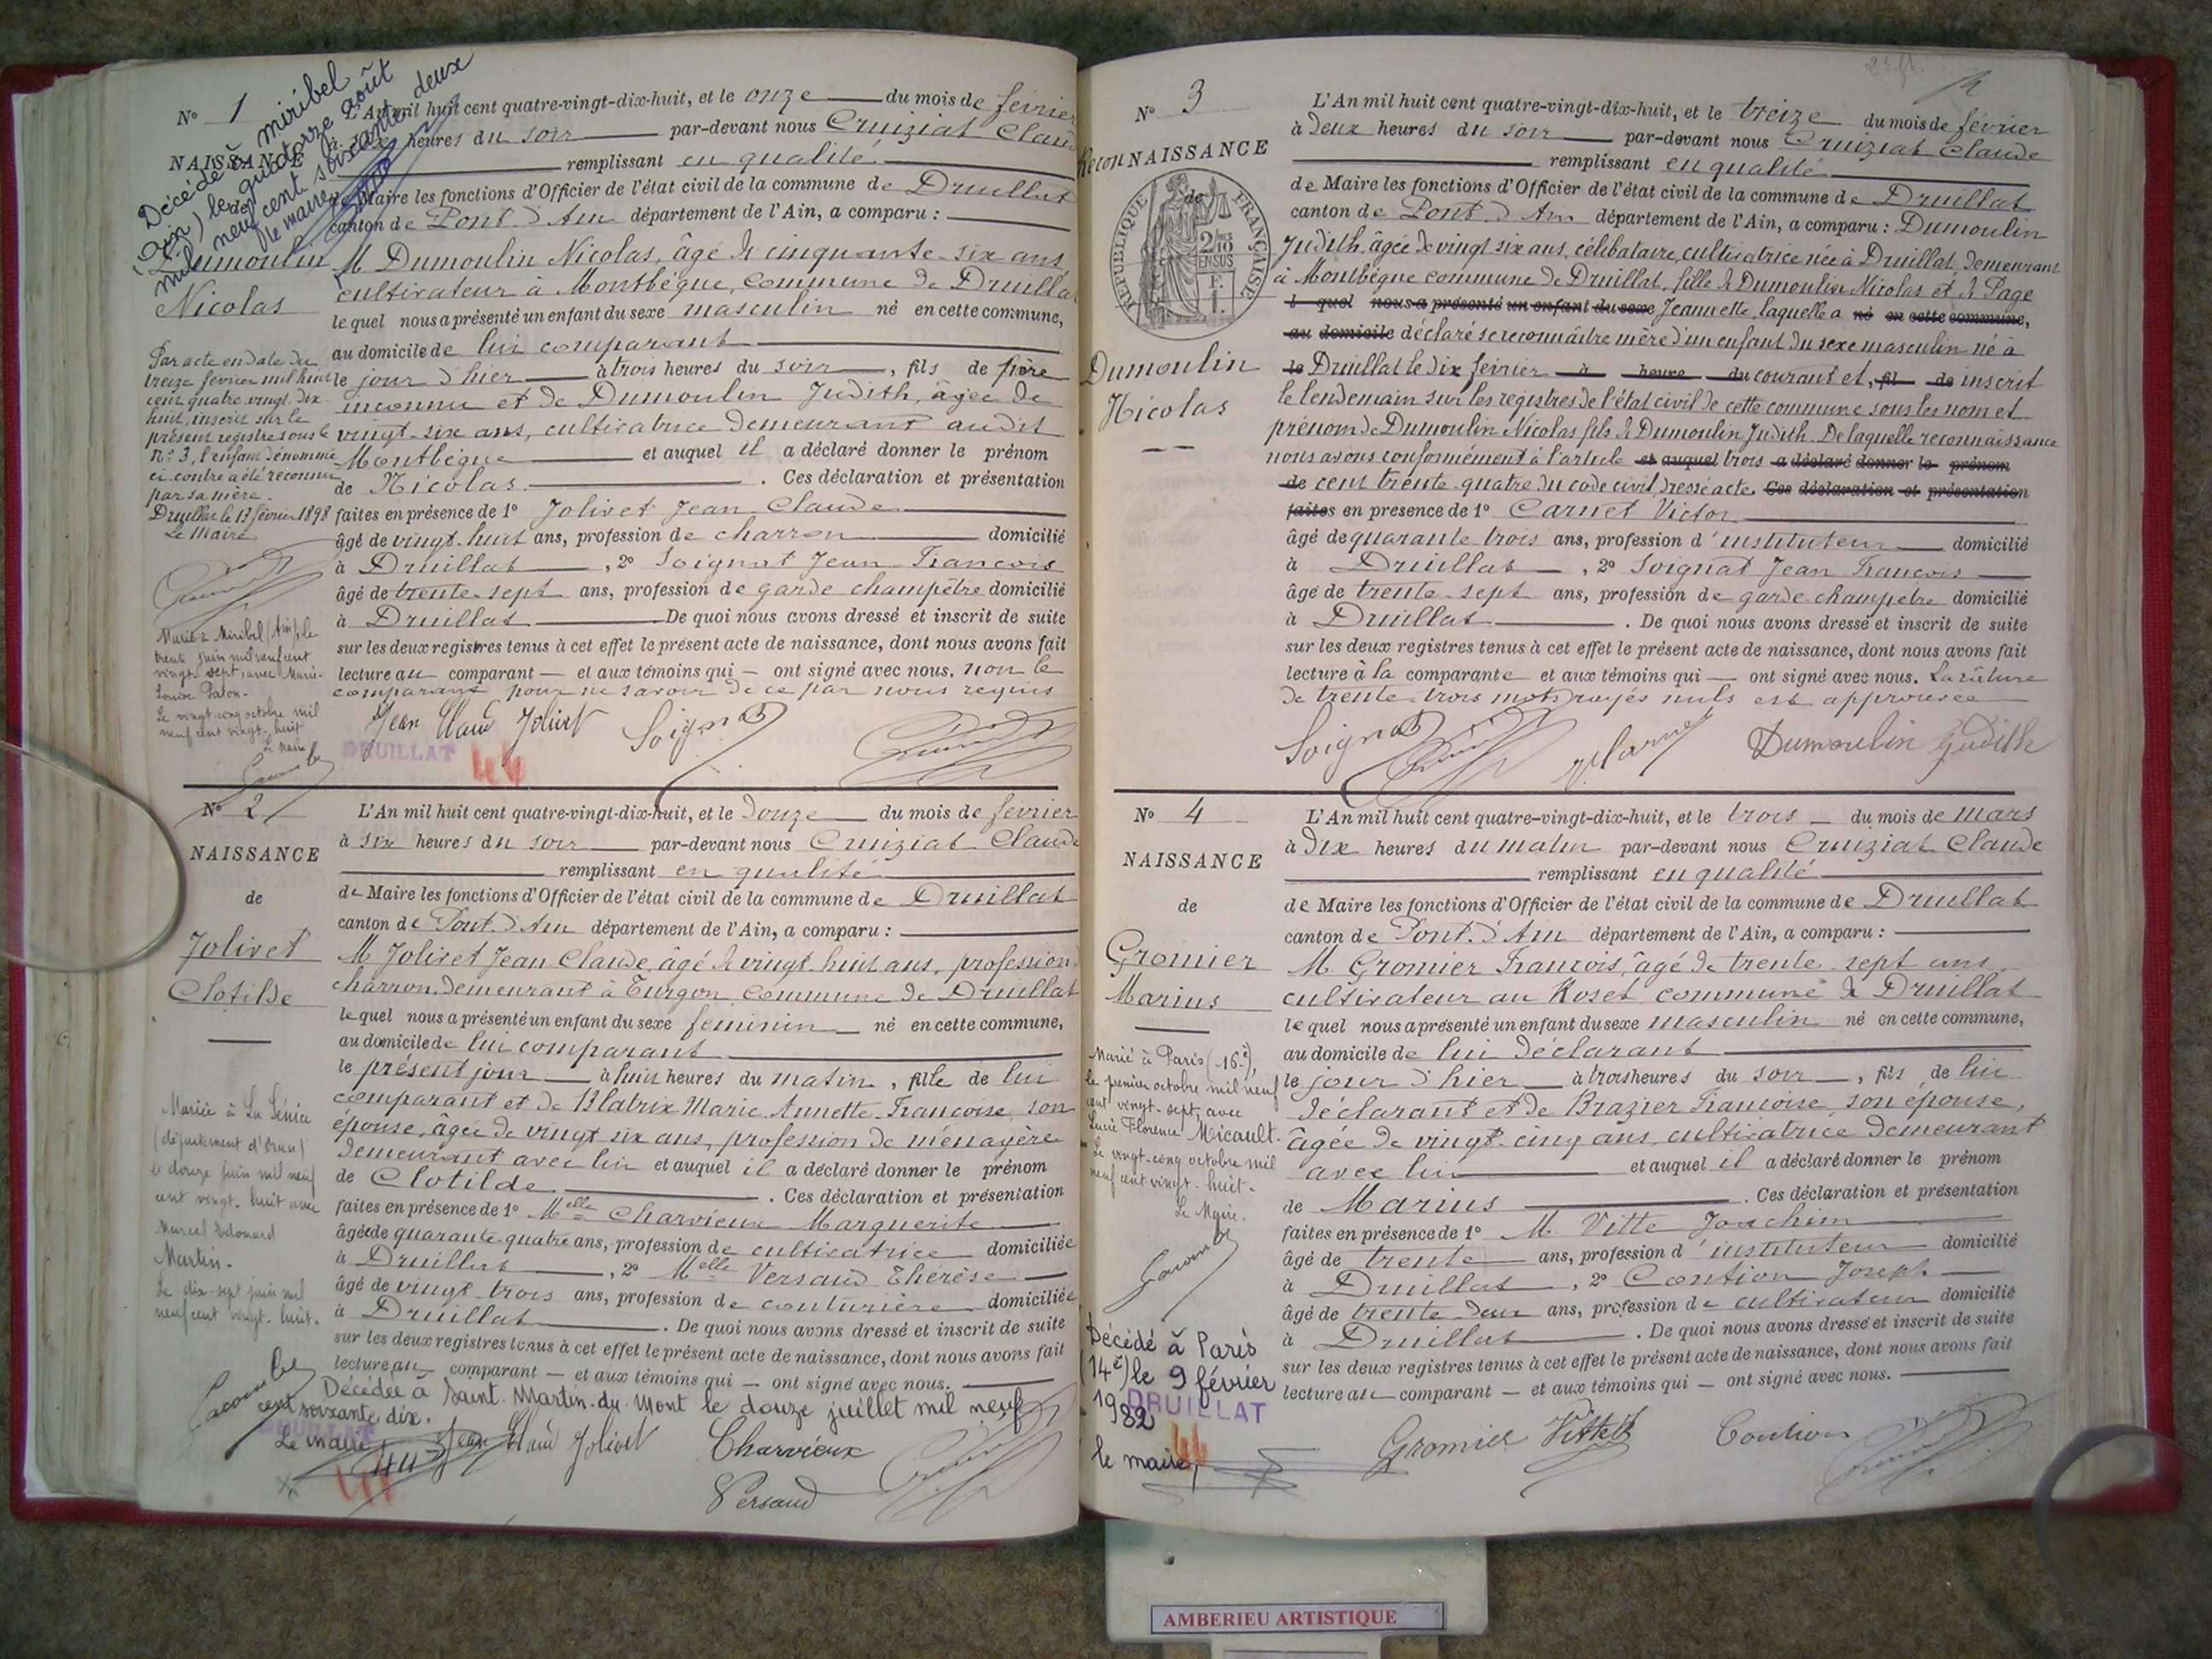 N° 1
NAISSANCE
Décédé à miribel
(ain) le quatorze août
mil neuf cent soixante deux
le maire
Dumoulin
Nicolas
Par acte en date du
treize février mil huit
cent quatre-vingt-dix-
huit, inscrit sur le
présent registre sous le
n° 3, l'enfant dénommé
ci-contre a été reconnu
par sa mère.
Druillat le 13 février 1898
Le Maire
Marié à Miribel (Ain), le
trente juin mil neuf cent
vingt sept, avec Marie-
Louise
Le vingt-cinq octobre mil
neuf cent vingt-huit
Le Maire
L'An mil huit cent quatre-vingt-dix-huit, et le onze du mois de février
heures du soir par-devant nous Cruiziat Claude
remplissant en qualité
de Maire les fonctions d'Officier de l'état civil de la commune de Druillat
canton de Pont d'Ain département de l'Ain, a comparu :
M Dumoulin Nicolas, âgé de cinquante-six ans
cultivateur à Montbègue, commune de Druillat
lequel nous a présenté un enfant du sexe masculin né en cette commune,
au domicile de lui comparant
le jour d'hier à trois heures du soir, fils de père
inconnu et de Dumoulin Judith, âgée de
vingt-six ans, cultivatrice demeurant audit
Montbègue et auquel il a déclaré donner le prénom
de Nicolas. Ces déclaration et présentation
faites en présence de 1° Jolivet Jean Claude
âgé de vingt-huit ans, profession de charron domicilié
à Druillat, 2° Soignat Jean François
âgé de trente-sept ans, profession de garde champêtre domicilié
à Druillat De quoi nous avons dressé et inscrit de suite
sur les deux registres tenus à cet effet le présent acte de naissance, dont nous avons fait
lecture au comparant et aux témoins qui ont signé avec nous, non le
comparant pour ne savoir de ce par nous requis
Jean Claude Jolivet Soignat
DRUILLAT
44
N° 2
NAISSANCE
de
Jolivet
Clotilde
Mariée à La Sénia
(département d'Oran)
le douze juin mil neuf
cent vingt-huit avec
Marcel Edouard
Martin.
Le dix-sept juin mil
neuf cent vingt-huit.
L'An mil huit cent quatre-vingt-dix-huit, et le douze du mois de février
à six heures du soir par-devant nous Cruiziat Claude
remplissant en qualité
de Maire les fonctions d'Officier de l'état civil de la commune de Druillat
canton de Pont d'Ain département de l'Ain, a comparu :
M Jolivet Jean Claude, âgé de vingt-huit ans, profession
charron, demeurant à Turgon, commune de Druillat
lequel nous a présenté un enfant du sexe féminin né en cette commune,
au domicile de lui comparant
le présent jour à huit heures du matin, fille de lui
comparant et de Blatrix Marie Annette Françoise son
épouse, âgée de vingt six ans, profession de ménagère
demeurant avec lui et auquel il a déclaré donner le prénom
de Clotilde. Ces déclaration et présentation
faites en présence de 1° Melle Charvieux Marguerite
âgée de quarante-quatre ans, profession de cultivatrice domiciliée
à Druillat, 2° Melle Versaud Thérèse
âgé de vingt-trois ans, profession de couturière domiciliée
à Druillat. De quoi nous avons dressé et inscrit de suite
sur les deux registres tenus à cet effet le présent acte de naissance, dont nous avons fait
lecture au comparant et aux témoins qui ont signé avec nous.
Décédée à Saint-Martin-du-Mont le douze juillet mil neuf
cent soixante dix.
Le maire
Jean Claude Jolivet Charvieux
Versaud
DRUILLAT
N° 3
ReconNAISSANCE
de
RÉPUBLIQUE FRANÇAISE
Dumoulin
Nicolas
L'An mil huit cent quatre-vingt-dix-huit, et le treize du mois de février
à deux heures du soir par-devant nous Cruiziat Claude
remplissant en qualité
de Maire les fonctions d'Officier de l'état civil de la commune de Druillat
canton de Pont d'Ain département de l'Ain, a comparu : Dumoulin
Judith, âgée de vingt six ans, célibataire, cultivatrice née à Druillat, demeurant
à Montbègue commune de Druillat, fille de Dumoulin Nicolas et de Page
l quel nous a présenté un enfant du sexe Jeannette, laquelle a né en cette commune,
au domicile déclaré se reconnaître mère d'un enfant du sexe masculin né à
le Druillat le dix février à heure du courant et, fil de inscrit
le lendemain sur les registres de l'état civil de cette commune sous les nom et
prénom de Dumoulin Nicolas fils de Dumoulin Judith. De laquelle reconnaissance
nous avons conformément à l'article et auquel trois a déclaré donner le prénom
de cent trente-quatre du code civil, dressé acte. Ces déclaration et présentation
faites en présence de 1° Carnet Victor
âgé de quarante-trois ans, profession d'instituteur domicilié
à Druillat, 2° Soignat Jean François
âgé de trente-sept ans, profession de garde-champêtre domicilié
à Druillat. De quoi nous avons dressé et inscrit de suite
sur les deux registres tenus à cet effet le présent acte de naissance, dont nous avons fait
lecture à la comparante et aux témoins qui ont signé avec nous. La rature
de trente-trois mots rayés nuls est approuvée
Soignat Dumoulin Judith
N° 4
NAISSANCE
de
Gromier
Marius
Marié à Paris (16e),
le premier octobre mil neuf
cent vingt-sept, avec
Lucie Florence Micault.
Le vingt-cinq octobre mil
neuf cent vingt-huit.
Le Maire.
Décédé à Paris
(14e) le 9 février
1982
le maire,
DRUILLAT
44
L'An mil huit cent quatre-vingt-dix-huit, et le trois du mois de mars
à dix heures du matin par-devant nous Cruiziat Claude
remplissant en qualité
de Maire les fonctions d'Officier de l'état civil de la commune de Druillat
canton de Pont d'Ain département de l'Ain, a comparu :
M. Gromier François, âgé de trente-sept ans
cultivateur au Roset commune de Druillat
lequel nous a présenté un enfant du sexe masculin né en cette commune,
au domicile de lui déclarant
le jour d'hier à trois heures du soir, fils de lui
déclarant et de Brazier Françoise son épouse,
âgée de vingt-cinq ans, cultivatrice demeurant
avec lui et auquel il a déclaré donner le prénom
de Marius. Ces déclaration et présentation
faites en présence de 1° M. Vitte Joachim
âgé de trente ans, profession d'instituteur domicilié
à Druillat, 2° Contion Joseph
âgé de trente-deux ans, profession de cultivateur domicilié
à Druillat. De quoi nous avons dressé et inscrit de suite
sur les deux registres tenus à cet effet le présent acte de naissance, dont nous avons fait
lecture au comparant et aux témoins qui ont signé avec nous.
Gromier Vitte Contion
AMBERIEU ARTISTIQUE